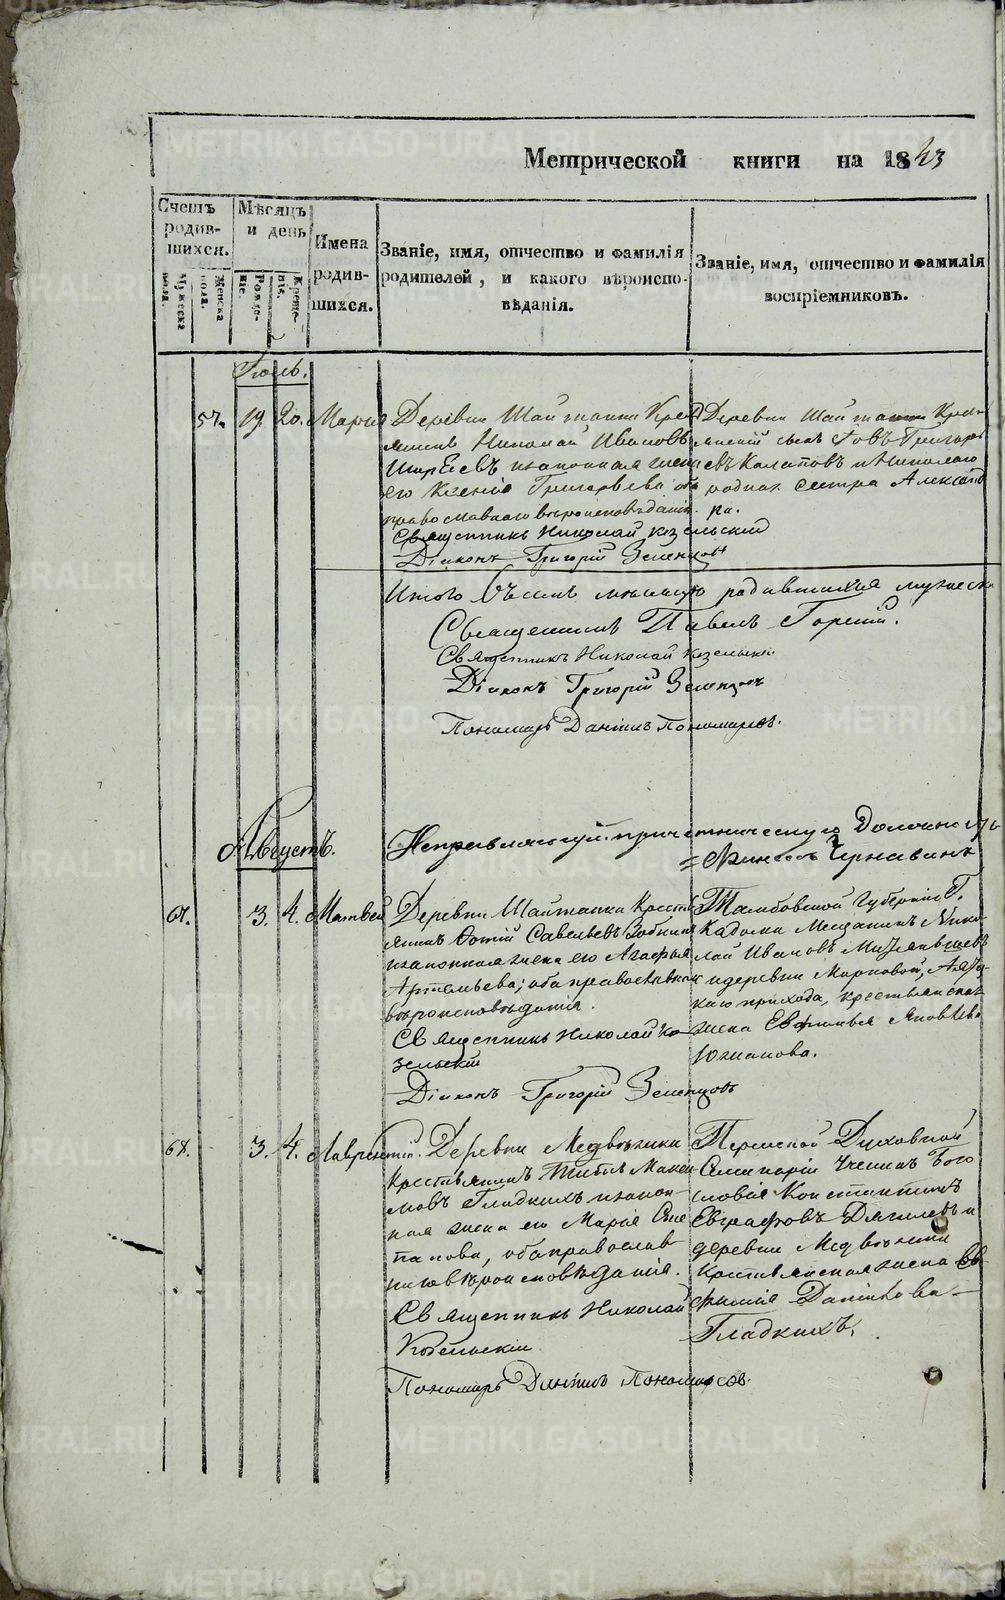 Метрической книги на 1843
Счетъ родив-шихся.
Мужеска пола.
Женска пола.
Мѣсяцъ и день
Рожде-ніе.
Креще-ніе.
Имена родив-шихся.
Званіе, имя, отчество и фамилія
родителей, и какого вѣроиспо-
вѣданія.
Званіе, имя, отчество и фамилія
воспріемниковъ.
Іюль.
57. 19. 20. Марія
Деревни Шайтанки Крес
Николай Ивановъ
законная жена
его Ксенія Григорьева оба
православнаго вѣроисповѣданія.
Священникъ Николай Козельскій
Діаконъ Григорій Зеленцовъ
Деревни Шайтанки Крес
янскій сынъ Григорь
евъ и Николаю
родная сестра Александ
ра.
Итого въ семъ мѣсяцѣ родившихся мужеска
Священникъ Павелъ Горный.
Священникъ Николай Козельскій
Діаконъ Григорій Зеленцовъ
Пономарь Даніилъ Пономаревъ.
Исправляющій причетническую Должность
Чернавинъ
Августъ.
67. 3. 4. Матвей
Деревни Шайтанки Кресть
янинъ Фотій Савельевъ
и законная жена его Агафья
Артемьева; оба православнаго
вѣроисповѣданія.
Священникъ Николай Ко
зельскій
Діаконъ Григорій Зеленцовъ
Тамбовской Губерніи Г.
Кадома Мещанинъ Нико
лай Ивановъ
и деревни Мироновой,
каго прихода, крестьянская
жена Евфимья Яковлева
Южакова.
68. 3. 4. Лаврентій.
Деревни Медвѣжки
Крестьянинъ Титъ Макси
мовъ Гладкихъ и закон-
ная жена его Марія Сте
панова, оба православ
наго вѣроисповѣданія.
Священникъ Николай
Козельскій
Пономарь Даніилъ Пономаревъ.
Пермской Духовной
Семинаріи Ученикъ Бого
словія Константинъ
Евграфовъ Дягилевъ и
деревни Медвѣжки
Крестьянская жена Ев
фимія Данилова
Гладкихъ.
METRIKI.GASO-URAL.RU